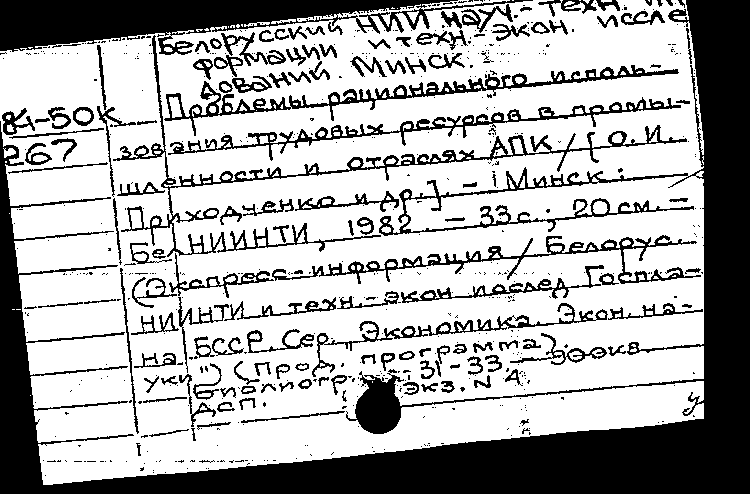 Белорусский НИИ науч.-техн. ин
формации и техн.-экон. иссле
дований. Минск.
84-50К
267
Проблемы рационального исполь-
зования трудовых ресурсов в промы-
шленности и отраслях АПК / [О.И.
Приходченко и др.]. - Минск:
БелНИИНТИ, 1982. - 33 с.; 20 см. -
(Экспресс-информация / Белорус.
НИИНТИ и техн.-экон исслед Госпла-
на БССР. Сер. "Экономика. Экон. на-
уки") (Прод. программа).
Библиогр. 31-33 - 300 экз.
ДСП. Экз. N 4
у